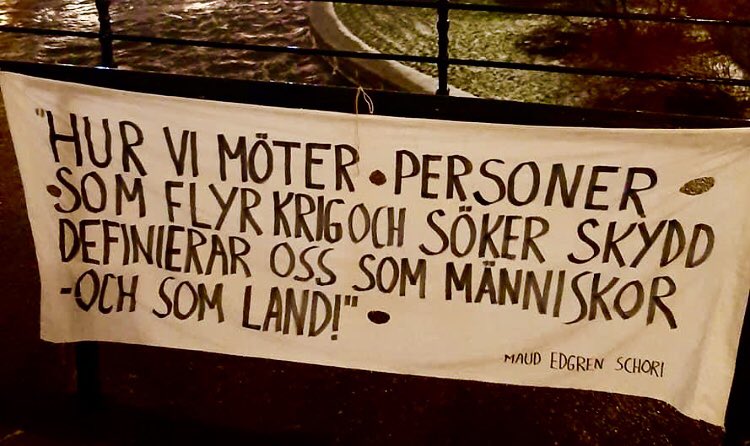 "HUR VI MÖTER • PERSONER
SOM FLYR KRIG OCH SÖKER SKYDD
DEFINIERAR OSS SOM MÄNNISKOR
-OCH SOM LAND!"
MAUD EDGREN SCHORI